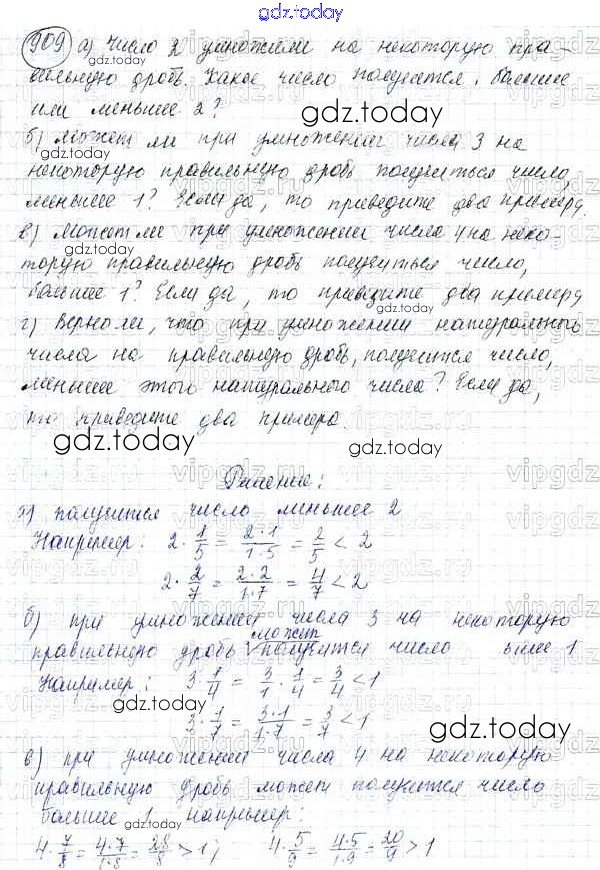 gdz.today
909 а) Число 2 умножили на некоторую пра-
вильную дробь. Какое число получится, большее
или меньшее 2?
gdz.today
б) Может ли при умножении числа 3 на
gdz.today
некоторую правильную дробь получиться число,
меньшее 1? Если да, то приведите два примера.
в) Может ли при умножении числа 4 на неко-
gdz.today
торую правильную дробь получиться число,
большее 1? Если да, то приведите два примера
г) Верно ли, что при умножении натурального
числа на правильную дробь, получится число,
меньшее этого натурального числа? Если да,
то приведите два примера.
gdz.today gdz.today
Решение:
а) получится число меньшее 2
Например: 2·1/5 = 2·1/1·5 = 2/5 < 2
2·2/7 = 2·2/1·7 = 4/7 < 2
gdz.today
б) при умножении числа 3 на некоторую
может
правильную дробь получится число 1
Например: 3·1/4 = 3/1·1/4 = 3/4 < 1
gdz.today
3·1/7 = 3·1/1·7 = 3/7 < 1
gdz.today
в) при умножении числа 4 на некоторую
правильную дробь может получится число
gdz.today
большее 1 например:
gdz.today
4·7/8 = 4·7/1·8 = 28/8 > 1; 4·5/9 = 4·5/1·9 = 20/9 > 1